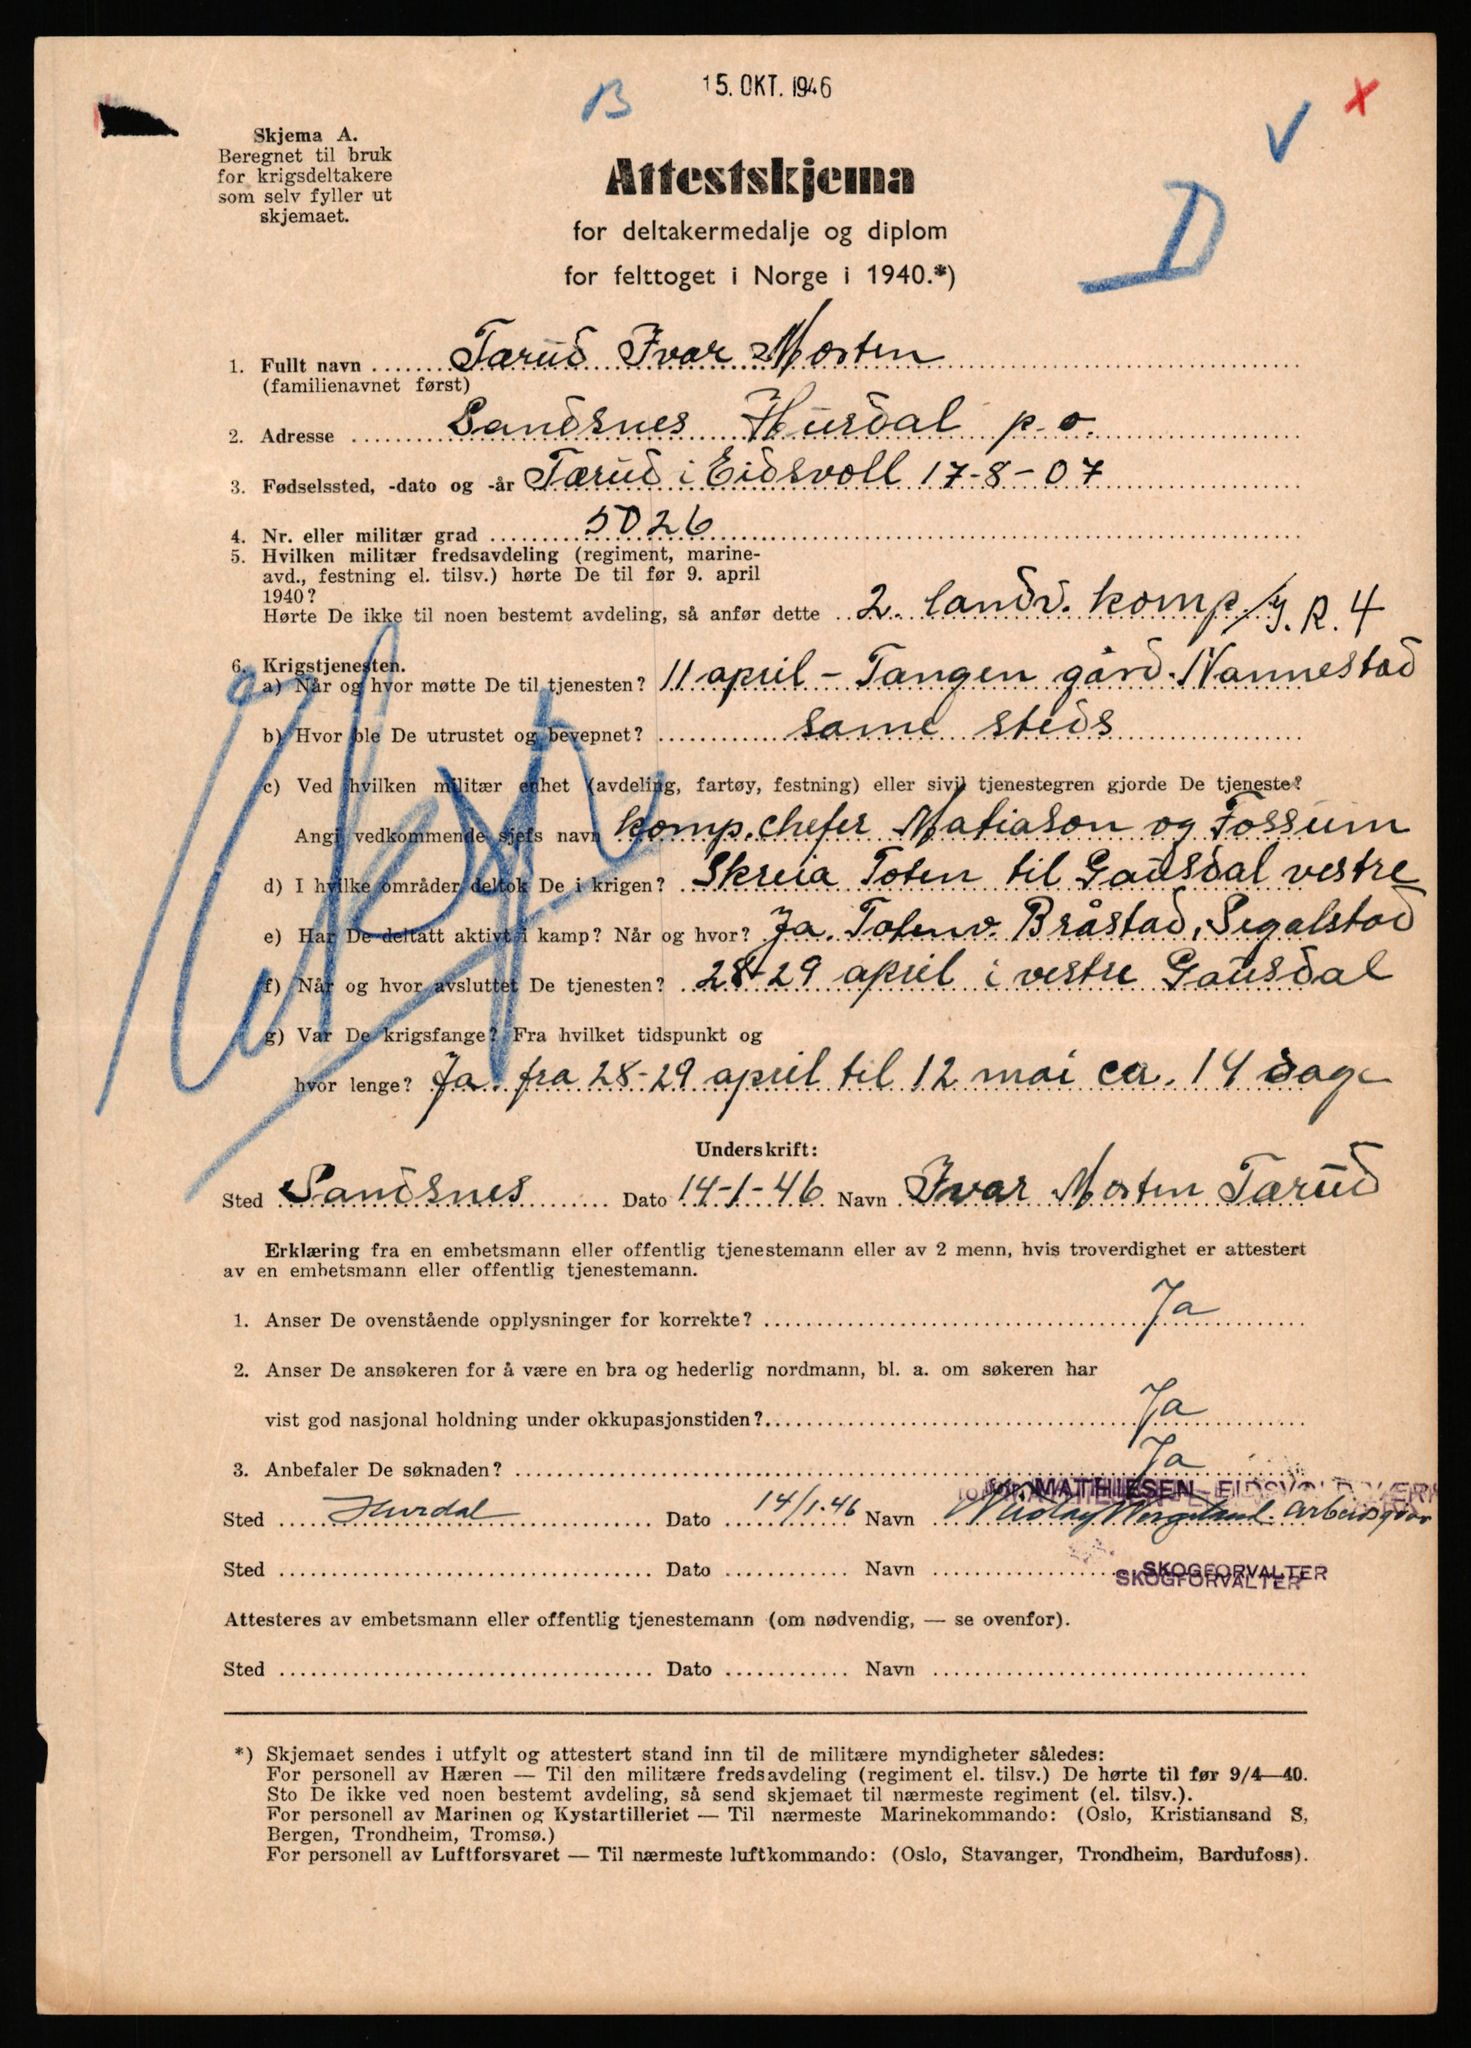 15. OKT. 1946
B
Skjema A.
Beregnet til bruk
for krigsdeltakere
som selv fyller ut
skjemaet.
Attestskjema
for deltakermedalje og diplom
for felttoget i Norge i 1940.*)
D
1. Fullt navn Tærud Ivar Morten
(familienavnet først)
2. Adresse Sandsnes Hurdal p.o.
3. Fødselssted, -dato og -år Tærud i Eidsvoll 17-8-07
4. Nr. eller militær grad 5026
5. Hvilken militær fredsavdeling (regiment, marine-
avd., festning el. tilsv.) hørte De til før 9. april
1940?
Hørte De ikke til noen bestemt avdeling, så anfør dette 2. landv. komp/J.R. 4
6. Krigstjenesten.
a) Når og hvor møtte De til tjenesten? 11 april - Tangen gård. Nannestad
b) Hvor ble De utrustet og bevepnet? same steds
c) Ved hvilken militær enhet (avdeling, fartøy, festning) eller sivil tjenestegren gjorde De tjeneste?
Angi vedkommende sjefs navn komp.chefer Matiason og Fossum
d) I hvilke områder deltok De i krigen? Skreia Toten til Gausdal vestre
e) Har De deltatt aktivt i kamp? Når og hvor? Ja. Totenv. Bråstad, Segalstad
f) Når og hvor avsluttet De tjenesten? 28-29 april i vestre Gausdal
g) Var De krigsfange? Fra hvilket tidspunkt og
hvor lenge? Ja. fra 28-29 april til 12 mai ca. 14 dage
Underskrift:
Sted Sandsnes Dato 14-1-46 Navn Ivar Morten Tærud
Erklæring fra en embetsmann eller offentlig tjenestemann eller av 2 menn, hvis troverdighet er attestert
av en embetsmann eller offentlig tjenestemann.
1. Anser De ovenstående opplysninger for korrekte? Ja
2. Anser De ansøkeren for å være en bra og hederlig nordmann, bl. a. om søkeren har
vist god nasjonal holdning under okkupasjonstiden? Ja
3. Anbefaler De søknaden? Ja
for MATHIESEN - EIDSVOLD VÆRK
Sted Hurdal Dato 14/1.46 Navn
Sted Dato Navn SKOGFORVALTER
Attesteres av embetsmann eller offentlig tjenestemann (om nødvendig, — se ovenfor).
Sted Dato Navn
*) Skjemaet sendes i utfylt og attestert stand inn til de militære myndigheter således:
For personell av Hæren — Til den militære fredsavdeling (regiment el. tilsv.) De hørte til før 9/4—40.
Sto De ikke ved noen bestemt avdeling, så send skjemaet til nærmeste regiment (el. tilsv.).
For personell av Marinen og Kystartilleriet — Til nærmeste Marinekommando: (Oslo, Kristiansand S,
Bergen, Trondheim, Tromsø.)
For personell av Luftforsvaret — Til nærmeste luftkommando: (Oslo, Stavanger, Trondheim, Bardufoss).